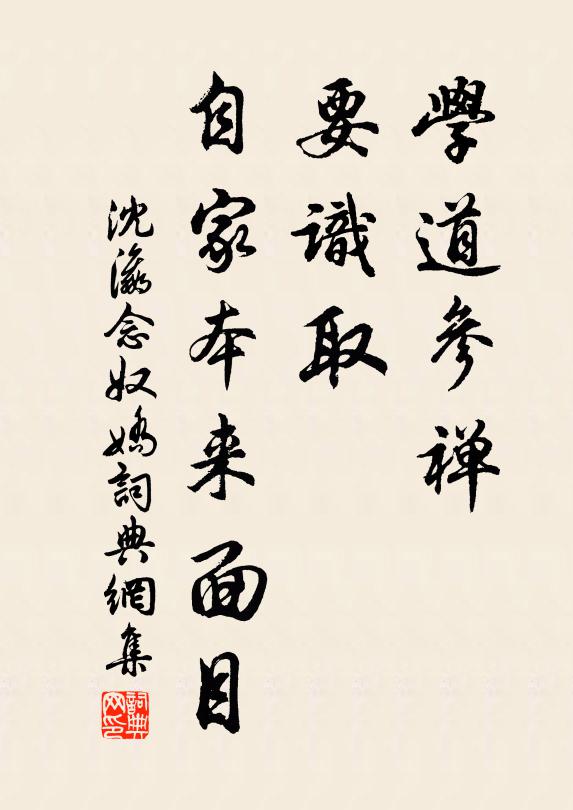 學道參禅
要識取
自家本来面目
沈瀛念奴嬌詞典網集
詞典
网印